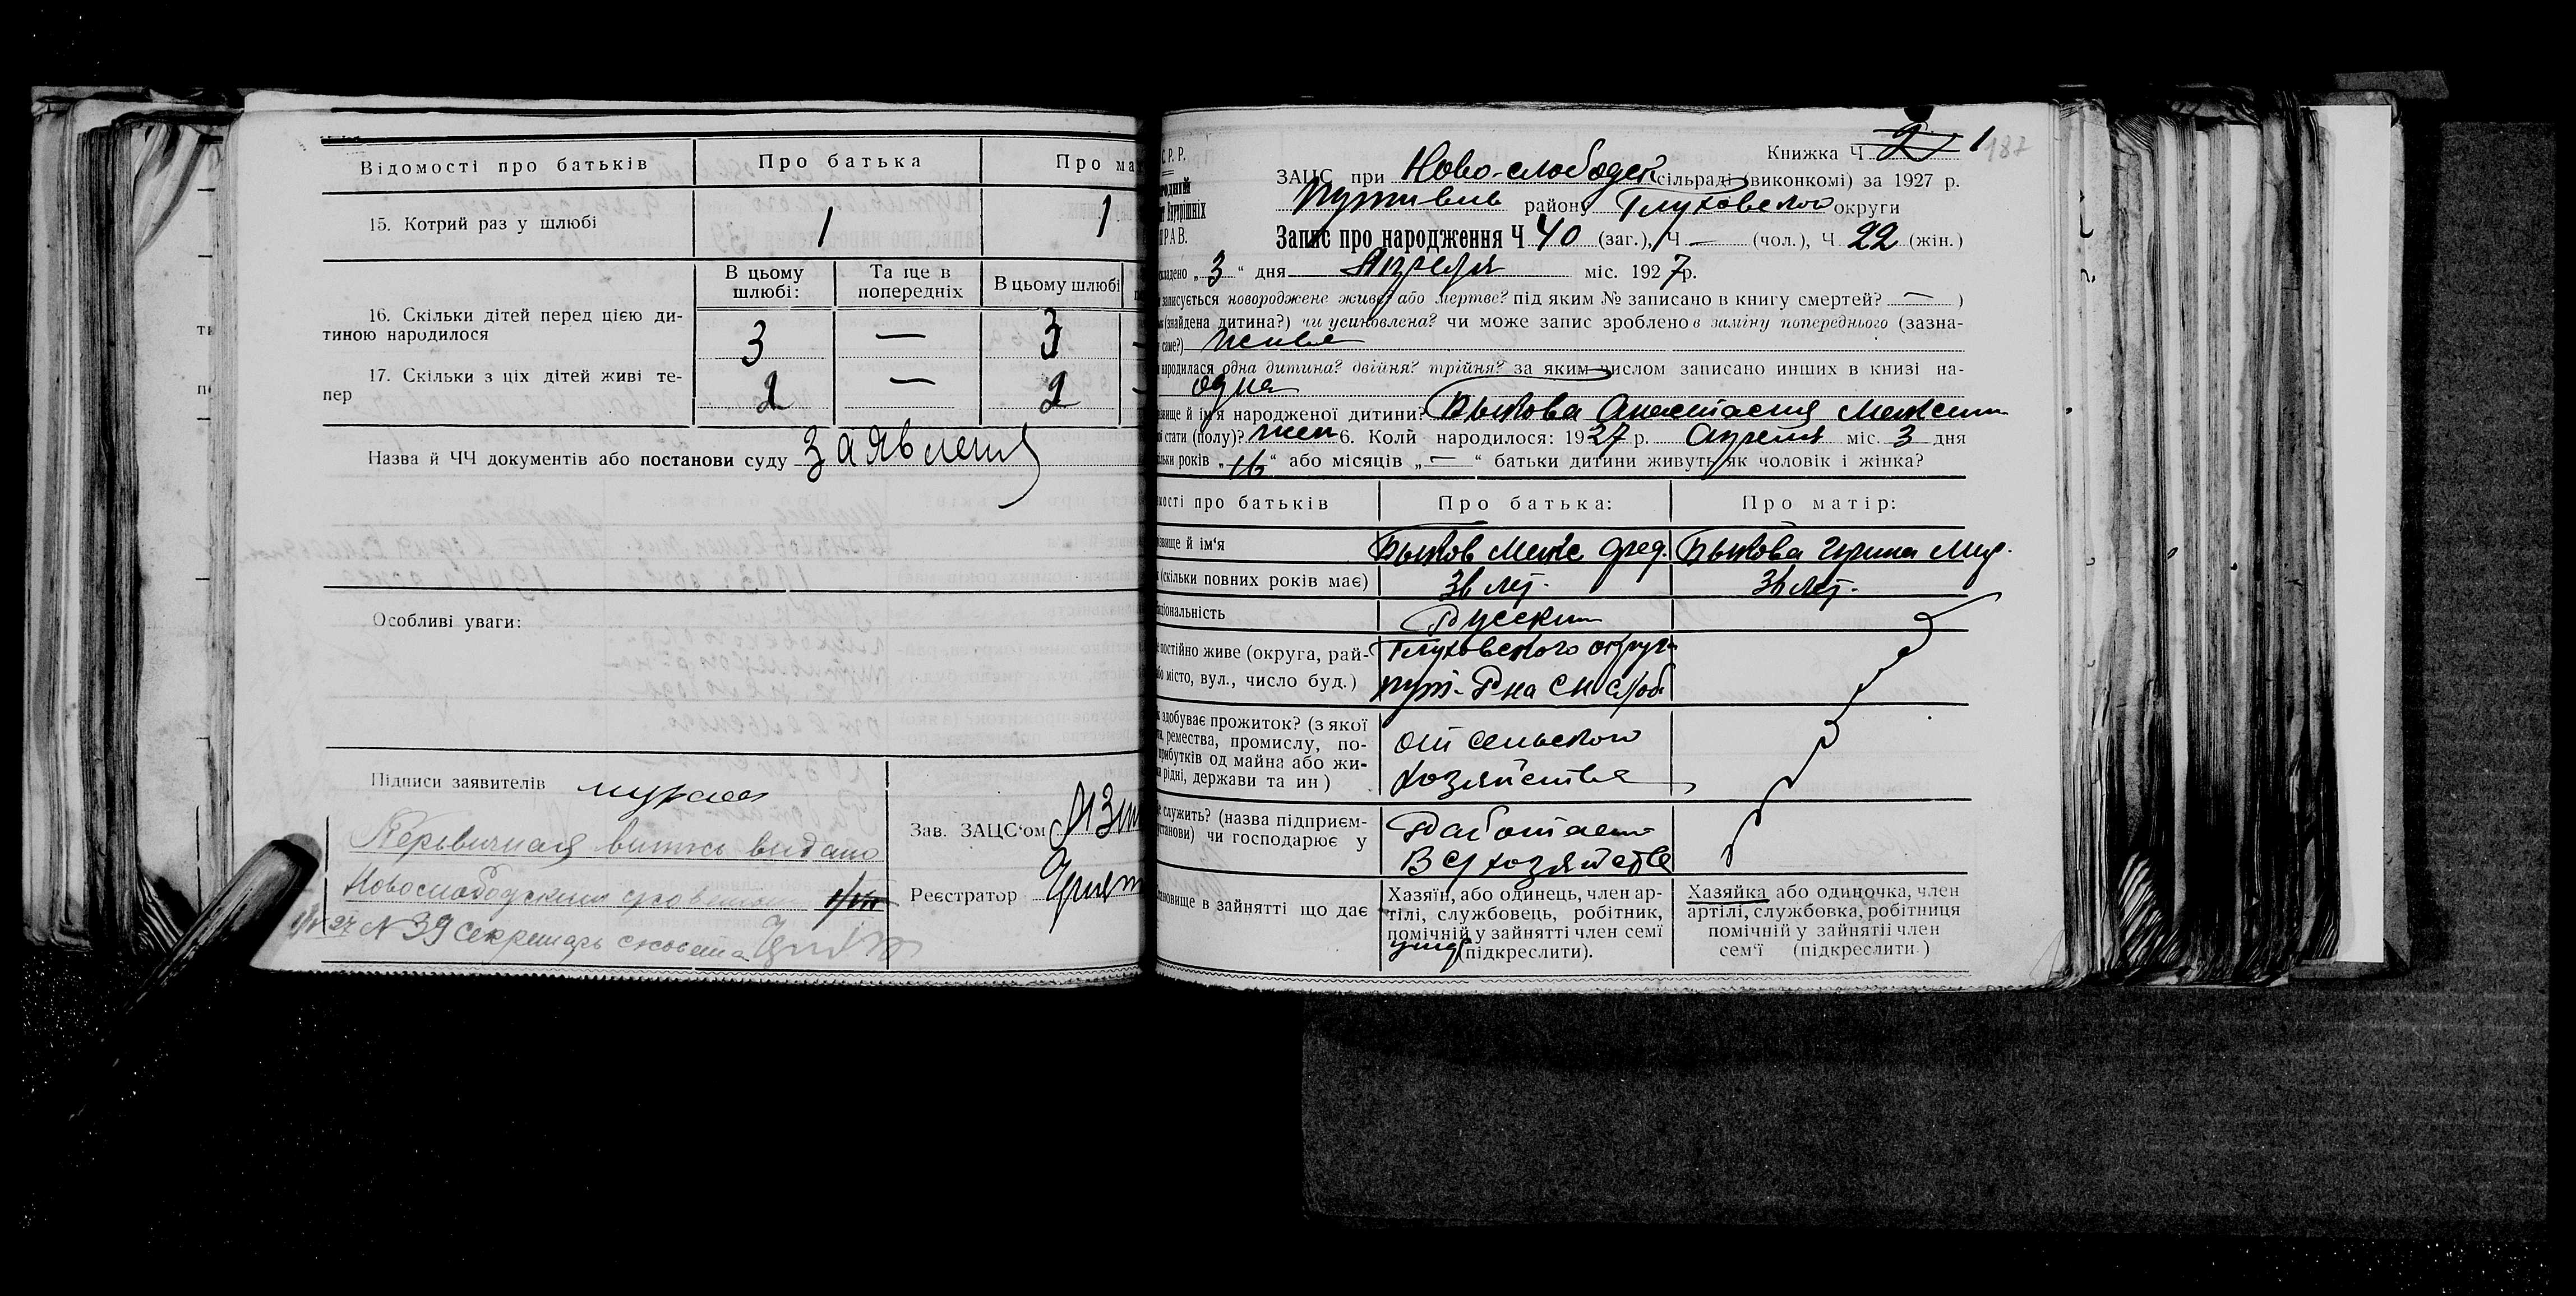 Відомості про батьків
Про батька
Про мат
15. Котрий раз у шлюбі
1
1
В цьому шлюбі:
Та ще в попередніх
В цьому шлюбі
16. Скільки дітей перед цією ди-
тиною народилося
3
—
3
17. Скільки з ціх дітей живі те-
пер
2
—
2
Назва й ЧЧ документів або постанови суду заявления
Особливі уваги:
Підписи заявителів
Зав. ЗАЦС‘ом
Реєстратор
Первичная выпись видано
Новослободским
N 39 Секретарь
Книжка Ч 2 1
187
С.Р.Р.
ЗАЦС при Ново-слободск сільраді (виконкомі) за 1927 р.
Путивль району Глуховского округи
Внутрішніх
ПРАВ.
Запис про народження Ч 40 (заг.), Ч — (чол.), Ч 22 (жін.)
кладено „3“ дня Апреля міс. 1927 р.
записується новороджене живе? або мертве? під яким № записано в книгу смертей? — )
(знайдена дитина?) чи усиновлена? чи може запис зроблено в заміну попереднього (зазна-
саме?) живая
народилася одна дитина? двійня? трійня? за яким числом записано инших в книзі на-
одна
звище й ім‘я народженої дитини? Быкова Анастасия Максим
стати (полу)? жен 6. Коли народилося: 1927 р. Апреля міс. 3 дня
ільки років „16“ або місяців „—“ батьки дитини живуть як чоловік і жінка?
мості про батьків
Про батька:
Про матір:
звище й ім‘я
Быков Макс Фед.
Быкова Ирина Мир.
(скільки повних років має)
36 лет.
36 лет.
аціональність
Русский
постійно живе (округа, рай-
бо місто, вул., число буд.)
Глуховского округа
пут. Р-на С Н Слоб
здобуває прожиток? (з якої
ремества, промислу, по-
прибутків од майна або жи-
рідні, держави та ин)
от сельского
хозяйства
служить? (назва підприєм-
установи) чи господарює у
Работает
В с/хозяйстве
становище в зайнятті що дає
Хазяїн, або одинець, член ар-
тілі, службовець, робітник,
помічній у зайнятті член семї
(підкреслити).
Хазяйка або одиночка, член
артілі, службовка, робітниця
помічній у зайнятіі член
сем‘ї (підкреслити)